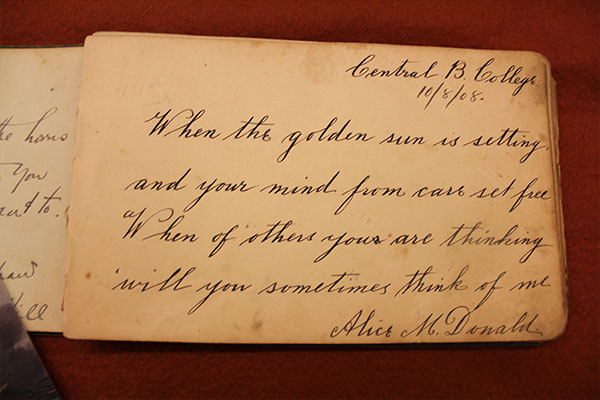 Central B. College
10/8/08.
When the golden sun is setting,
and your mind from care set free
"When of others your are thinking
will you sometimes think of me
Alice M. Donald.
the
You
to.